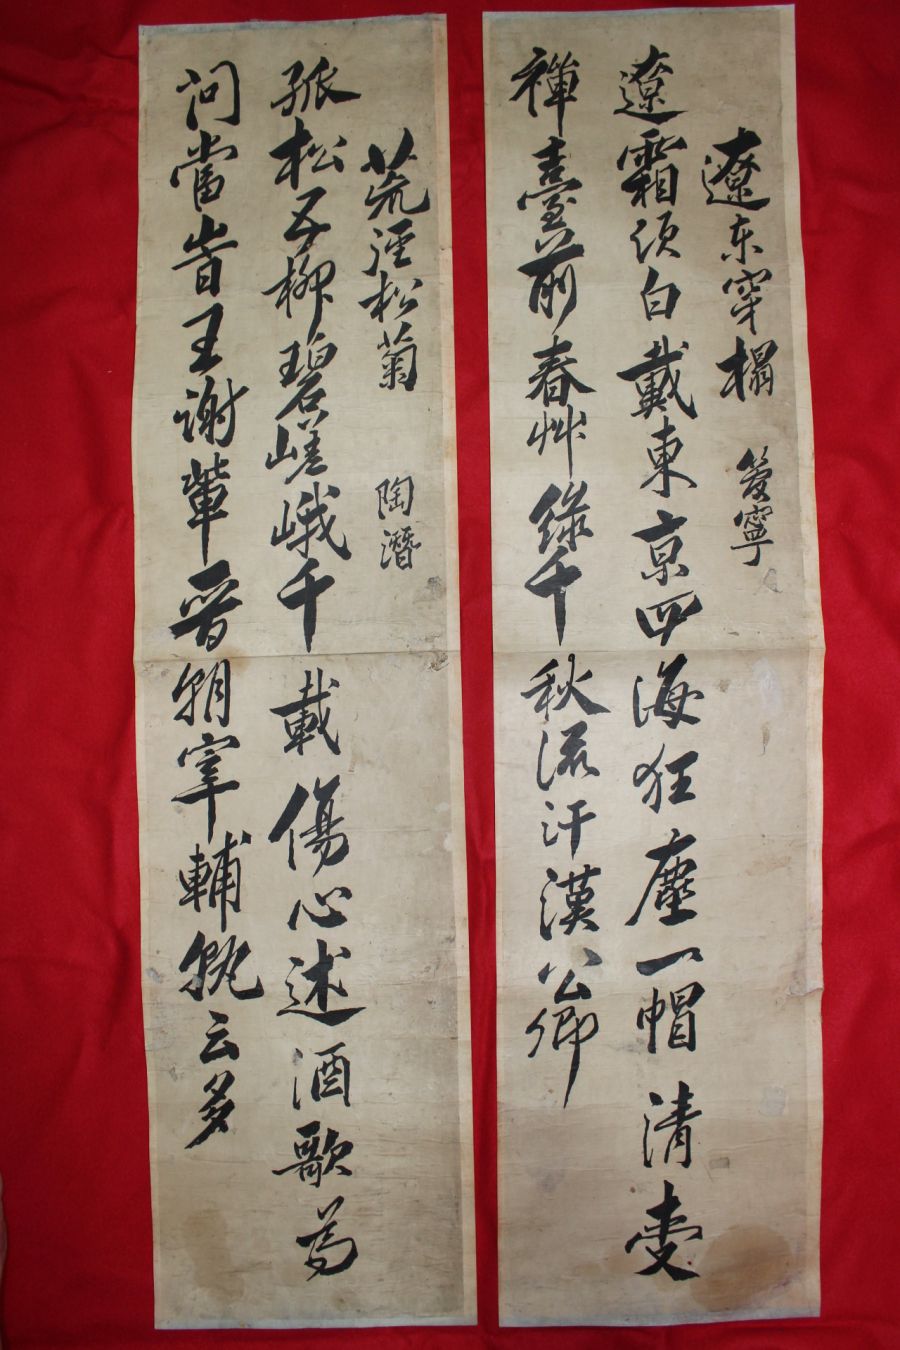 遼东穿榻 管寧
遼霜须白戴東京四海狂塵一帽清受
禅臺前春艸綠千秋流汗漢公卿
荒逕松菊 陶潛
孤松五柳碧嵯峨千載傷心述酒歌為
问當昔王谢輩晋朝宰輔孰云多